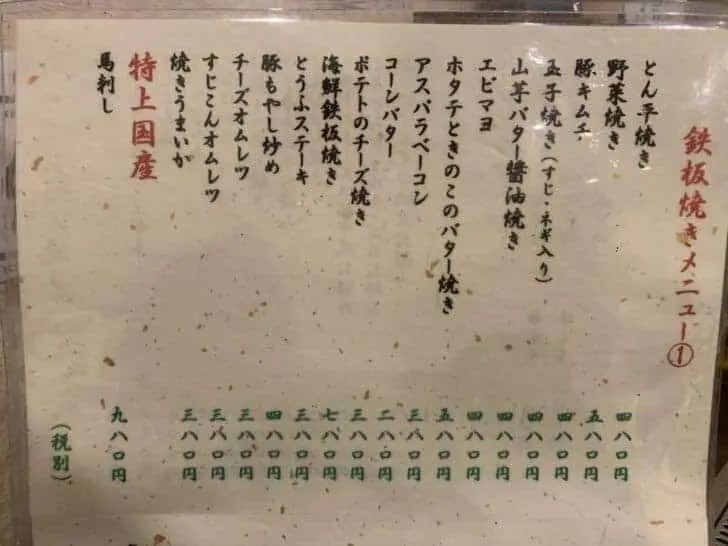 鉄板焼きメニュー①
とん平焼き 四八〇円
野菜焼き 五八〇円
豚キムチ 四八〇円
玉子焼き(すじ・ネギ入り) 四八〇円
山芋バター醬油焼き 四八〇円
エビマヨ 四八〇円
ホタテときのこのバター焼き 五八〇円
アスパラベーコン 三八〇円
コーンバター 二八〇円
ポテトのチーズ焼き 三八〇円
海鮮鉄板焼き 七八〇円
とうふステーキ 三八〇円
豚もやし炒め 四八〇円
チーズオムレツ 三八〇円
すじこんオムレツ 三八〇円
焼きうまいか 三八〇円
特上国産
馬刺し 九八〇円
(税別)